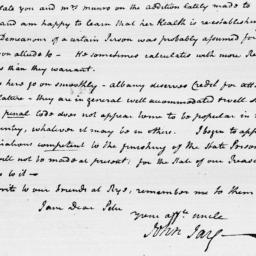 late you and Mrs. Munro on the addition lately made to
and am happy to learn that her Health is reestablish
Demeanor of a certain Person was probably assumed for
on alluded to – He sometimes calculates with more Re
s than they warrant.
s here go on smoothly – albany deserves Credit for att
lature – they are in general well accommodated & well s
penal Code does not appear to me to be popular in t
untry, whatever it may be in others. I begin to app
riations competent to the finishing of the State Prison
ill not be made at present; for the State of our Treasu
s to it –
write to our friends at Rye, remember me to them
I am Dear Peter
Your aff.te uncle
John Jay